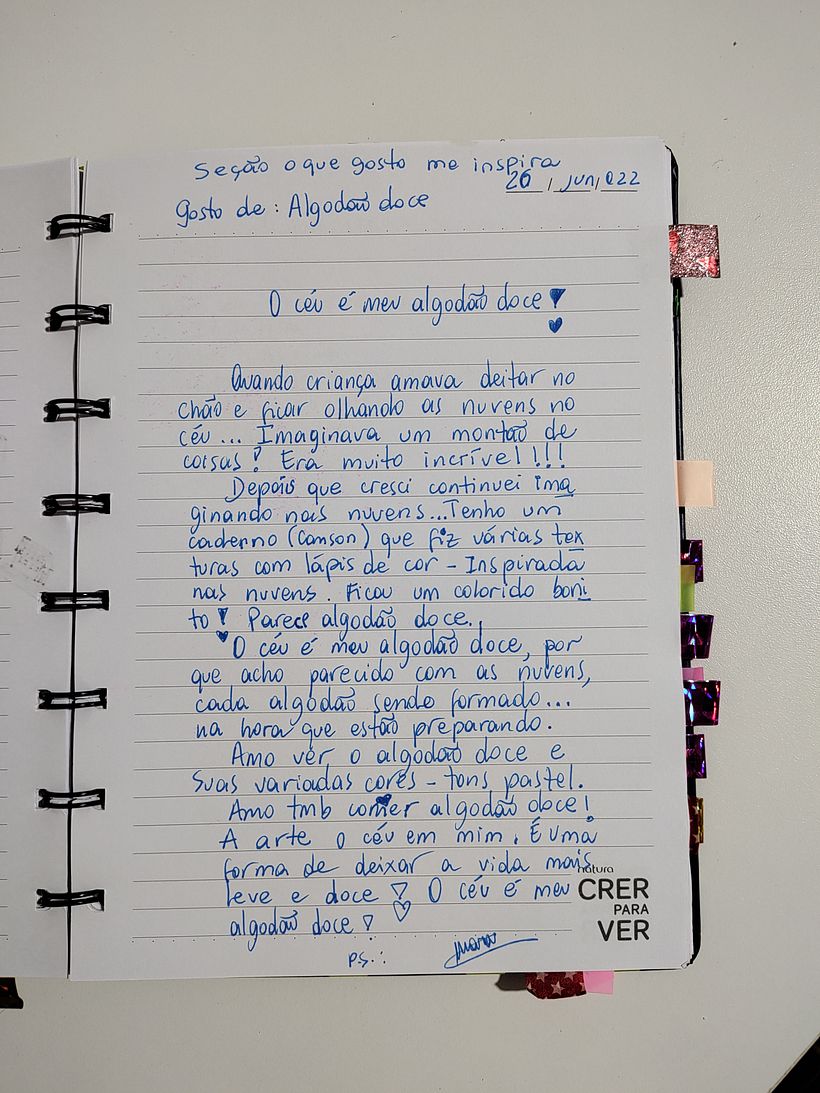 Seção o que gosto me inspira
26 / Jun / 022
Gosto de : Algodão doce
O céu é meu algodão doce!
Quando criança amava deitar no
chão e ficar olhando as nuvens no
céu... Imaginava um montão de
coisas! Era muito incrível!!!
Depois que cresci continuei ima
ginando nas nuvens...Tenho um
caderno (Canson) que fiz várias tex
turas com lápis de cor - Inspirada
nas nuvens. Ficou um colorido boni
to! Parece algodão doce.
O céu é meu algodão doce, por
que acho parecido com as nuvens,
cada algodão sendo formado...
na hora que estão preparando.
Amo ver o algodão doce e
suas variadas cores - tons pastel.
Amo tmb comer algodão doce!
A arte o céu em mim. É uma
forma de deixar a vida mais
leve e doce! O céu é meu
algodão doce!
natura
CRER
PARA
VER
P.S.: